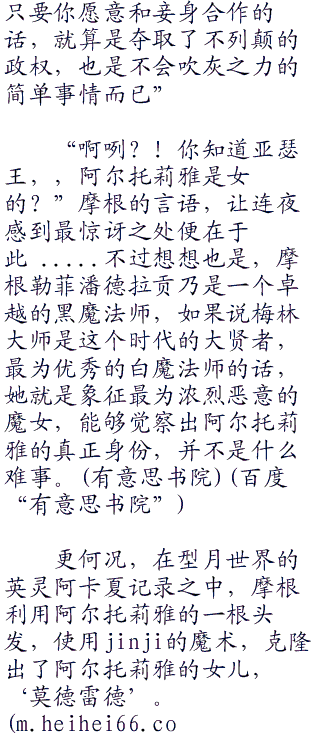 只要你愿意和妾身合作的
话，就算是夺取了不列颠的
政权，也是不会吹灰之力的
简单事情而已”
“啊咧？！你知道亚瑟
王，，阿尔托莉雅是女
的？”摩根的言语，让连夜
感到最惊讶之处便在于
此 .....不过想想也是，摩
根勒菲潘德拉贡乃是一个卓
越的黑魔法师，如果说梅林
大师是这个时代的大贤者，
最为优秀的白魔法师的话，
她就是象征最为浓烈恶意的
魔女，能够觉察出阿尔托莉
雅的真正身份，并不是什么
难事。(有意思书院)(百度
“有意思书院”)
更何况，在型月世界的
英灵阿卡夏记录之中，摩根
利用阿尔托莉雅的一根头
发，使用jinji的魔术，克隆
出了阿尔托莉雅的女儿，
‘莫德雷德’。
(m.heihei66.co